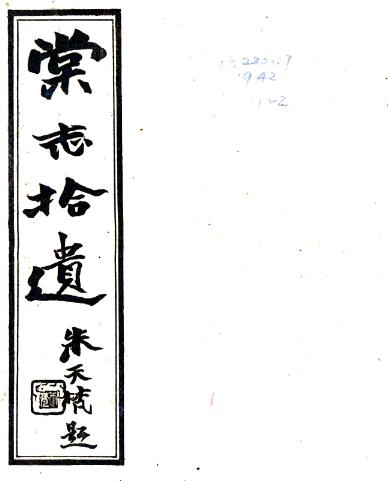 棠志拾遺
朱天梵題
220.17
942
1-2